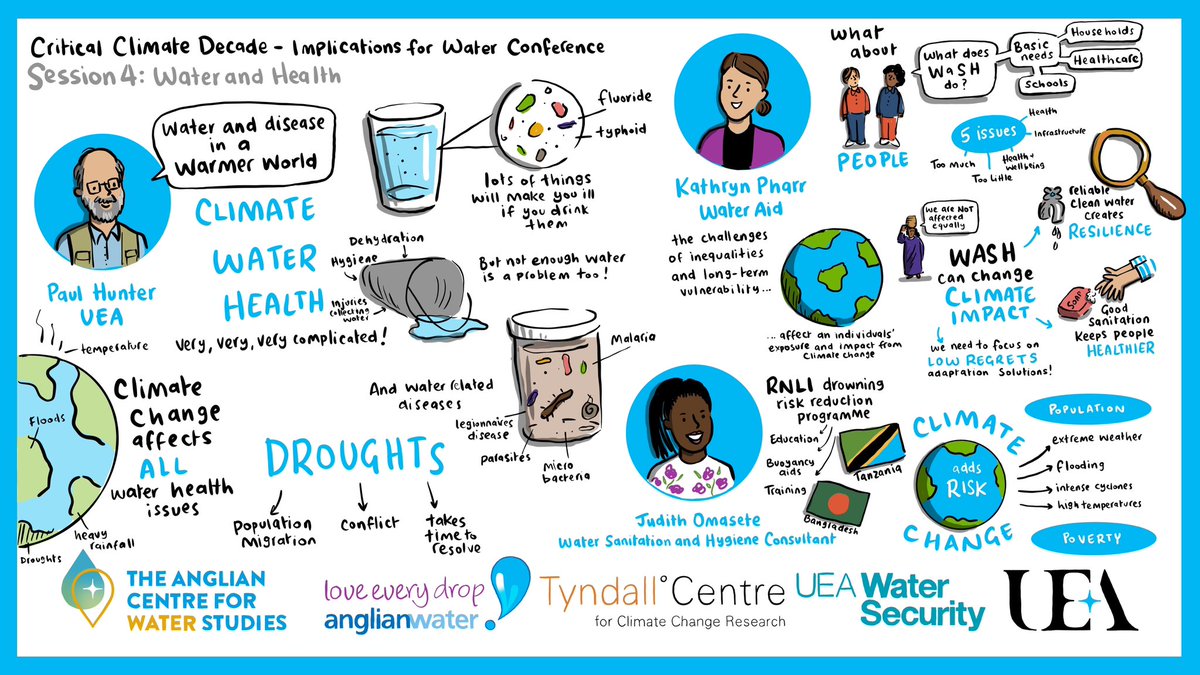 Critical Climate Decade - Implications for Water Conference
Session 4: Water and Health
Water and disease
in a
Warmer World
Paul Hunter
UEA
CLIMATE
WATER
HEALTH
very, very, very complicated!
fluoride
typhoid
lots of things
will make you ill
if you drink
them
Dehydration
Hygiene
Injuries
collecting
water
But not enough water
is a problem too!
temperature
Floods
Droughts
heavy
rainfall
Climate
Change
affects
ALL
water health
issues
And water related
diseases
Malaria
legionnaires
disease
parasites
micro
bacteria
DROUGHTS
Population
Migration
Conflict
takes
time to
resolve
Kathryn Pharr
Water Aid
the challenges
of inequalities
and long-term
vulnerability...
... affect an individuals'
exposure and impact from
Climate change
What
about
PEOPLE
What does
WaSH
do?
Basic
needs
Households
Healthcare
Schools
5 issues
Health
Infrastructure
Health +
Wellbeing
Too Little
Too Much
We are NOT
affected
equally
WASH
can change
CLIMATE
IMPACT
reliable
Clean water
creates
RESILIENCE
Soap
Good
Sanitation
Keeps people
HEALTHIER
We need to focus on
LOW REGRETS
adaptation Solutions!
Judith Omasete
Water Sanitation and Hygiene Consultant
RNLI drowning
risk reduction
programme
Education
Buoyancy
aids
Training
Tanzania
Bangladesh
CLIMATE
adds
RISK
CHANGE
POPULATION
extreme weather
flooding
intense cyclones
high temperatures
POVERTY
THE ANGLIAN
CENTRE FOR
WATER STUDIES
love every drop
anglianwater
Tyndall°Centre
for Climate Change Research
UEA Water
Security
UEA